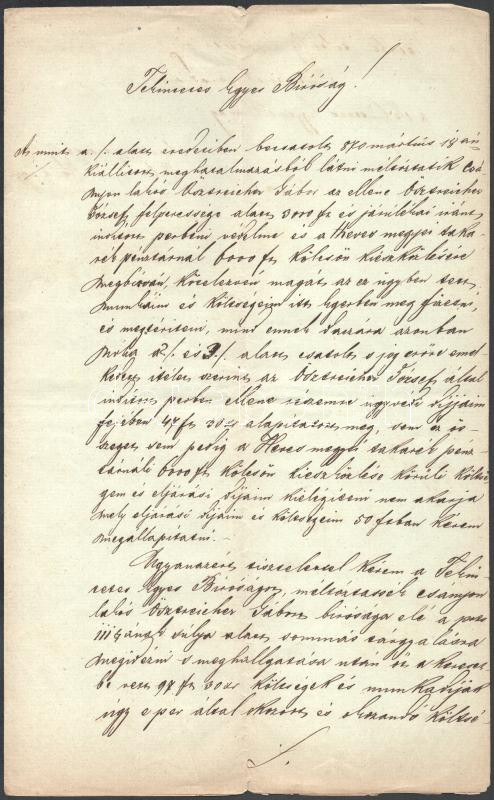 Tekintetes Egyes Biróság!
A mint a ./. alatt eredetiben becsatolt 870 mártius 18 án
kiállitott meghatalmazásból látni méltóztatik Csá
nyon lakós Österreicher Gábor az ellene Österreicher
József felperessége alatt 3000 ft és járulékai iránt
inditott perbeni védelme és a Heves megyei taka
rék pénztárnál 6000 ft kölcsön kieszközlésére
megbízván, kötelezvén magát az ez ügyben tett
munkáim és költségeim itt Egerben meg fizetni
és megtériteni, mind ennek daczára azonban
noha a 2/. és 3./. alatt csatolt s jog erőre emel
kedett itélet szerint az Österreicher József által
inditott perben ellene részemre ügyvédi dijjaim
fejében 47 ft 30 xr alapitatott meg, sem ez ös-
szeget sem pedig a Heves megyei takarék pénz-
tárnáli 6000 ft kölcsön kieszközlése körüli költsé
geim és eljárási dijaim kielégiteni nem akarja
mely eljárási dijaim és költségeim 50 ftban kérem
megállapitatni. –
Ugyanazért tisztelettel kérem a Tekin-
tetes Egyes Biróságot, méltóztassék csányon
lakós Österreicher Gábort birósága elé a prts
111 § ának súlya alatt sommás tárgyalásra
megidézni s meghallgatása után őt a kereset
be vett 97 ft 30 xr költségek és munkadijak
úgy e per által okozott és okozandó költsé
./.